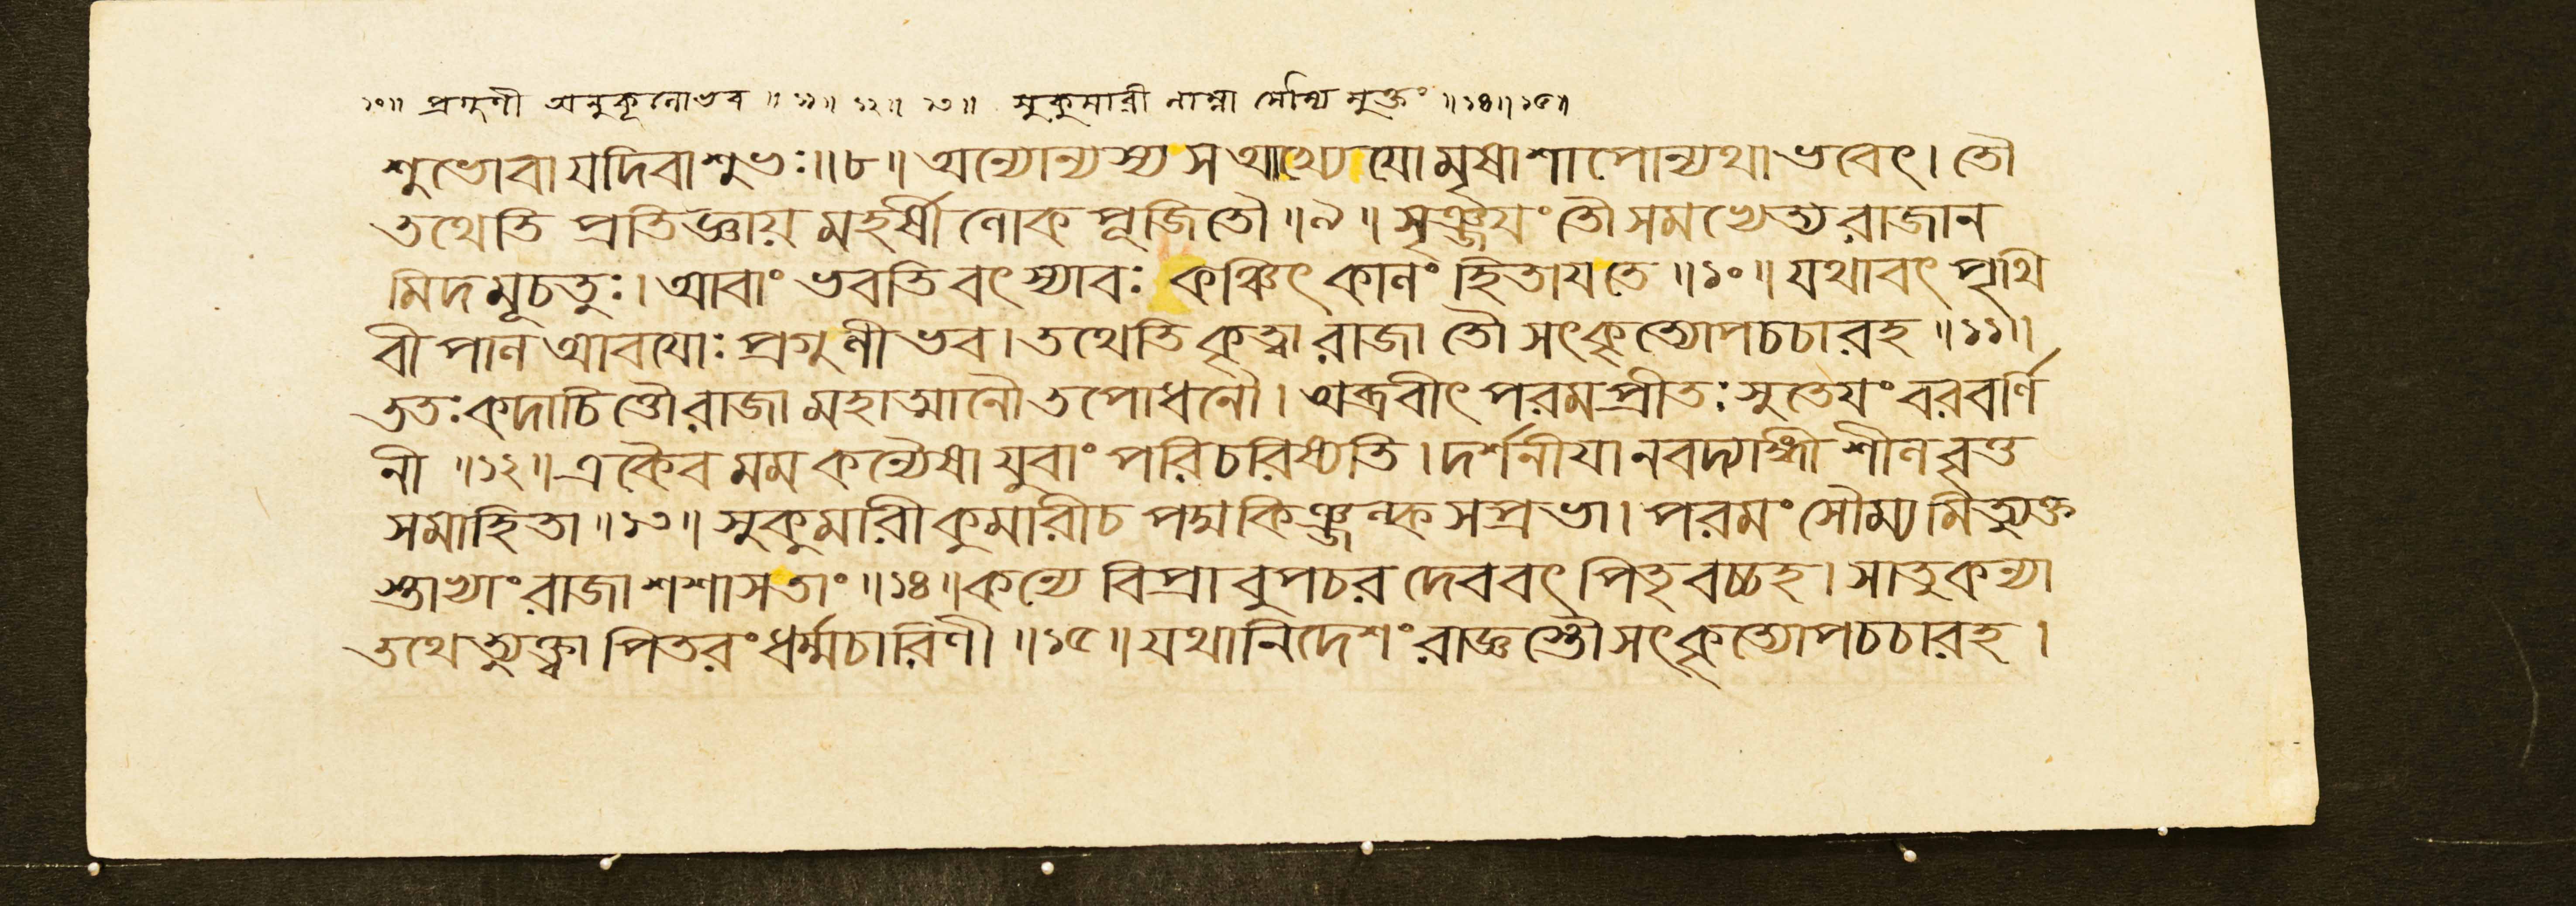 ১০॥ প্রগুণী অনুকূলোভব ॥ ১১॥ ১২॥ ১৩॥ সুকুমারী নাম্না সৌম্য মুক্তং ॥১৪॥১৫॥
শুভোবা যদিবাশুভঃ॥৮॥ অন্যোন্যস্য স আখ্যেযো মৃষাশাপোন্যথাভবেৎ। তৌ
তথেতি প্রতিজ্ঞায় মহর্ষী লোক পূজিতৌ ॥৯॥ সৃঞ্জযং তৌসমভ্যেত্য রাজান
মিদ মূচতুঃ। আবাং ভবতি বৎস্যাবঃ কঞ্চিৎ কালং হিতাযতে ॥১০॥ যথাবৎ পৃথি
বী পাল আবযোঃ প্রগুণী ভব। তথেতি কৃত্বা রাজা তৌ সৎকৃত্যোপচচারহ ॥১১॥
ততঃ কদাচিত্তৌ রাজা মহাত্মানৌ তপোধনৌ। অব্রবীৎ পরমপ্রীতঃ সুতেযং বরবর্ণি
নী ॥১২॥ একৈব মম কন্যৈষা যুবাং পরিচরিষ্যতি। দর্শনীযানবদ্যাঙ্গী শীলবৃত্ত
সমাহিতা ॥১৩॥ সুকুমারী কুমারীচ পদ্মকিঞ্জল্ক সপ্রভা। পরমং সৌম্য মিত্যুক্ত
স্তাভ্যাং রাজা শশাসতাং ॥১৪॥ কন্যে বিপ্রাবুপচর দেববৎ পিতৃবচ্চহ। সাতুকন্যা
তথেত্যুক্ত্বা পিতরং ধর্ম্মচারিণী ॥১৫॥ যথানিদেশং রাজ্ঞস্তৌ সৎকৃত্যোপচচারহ।